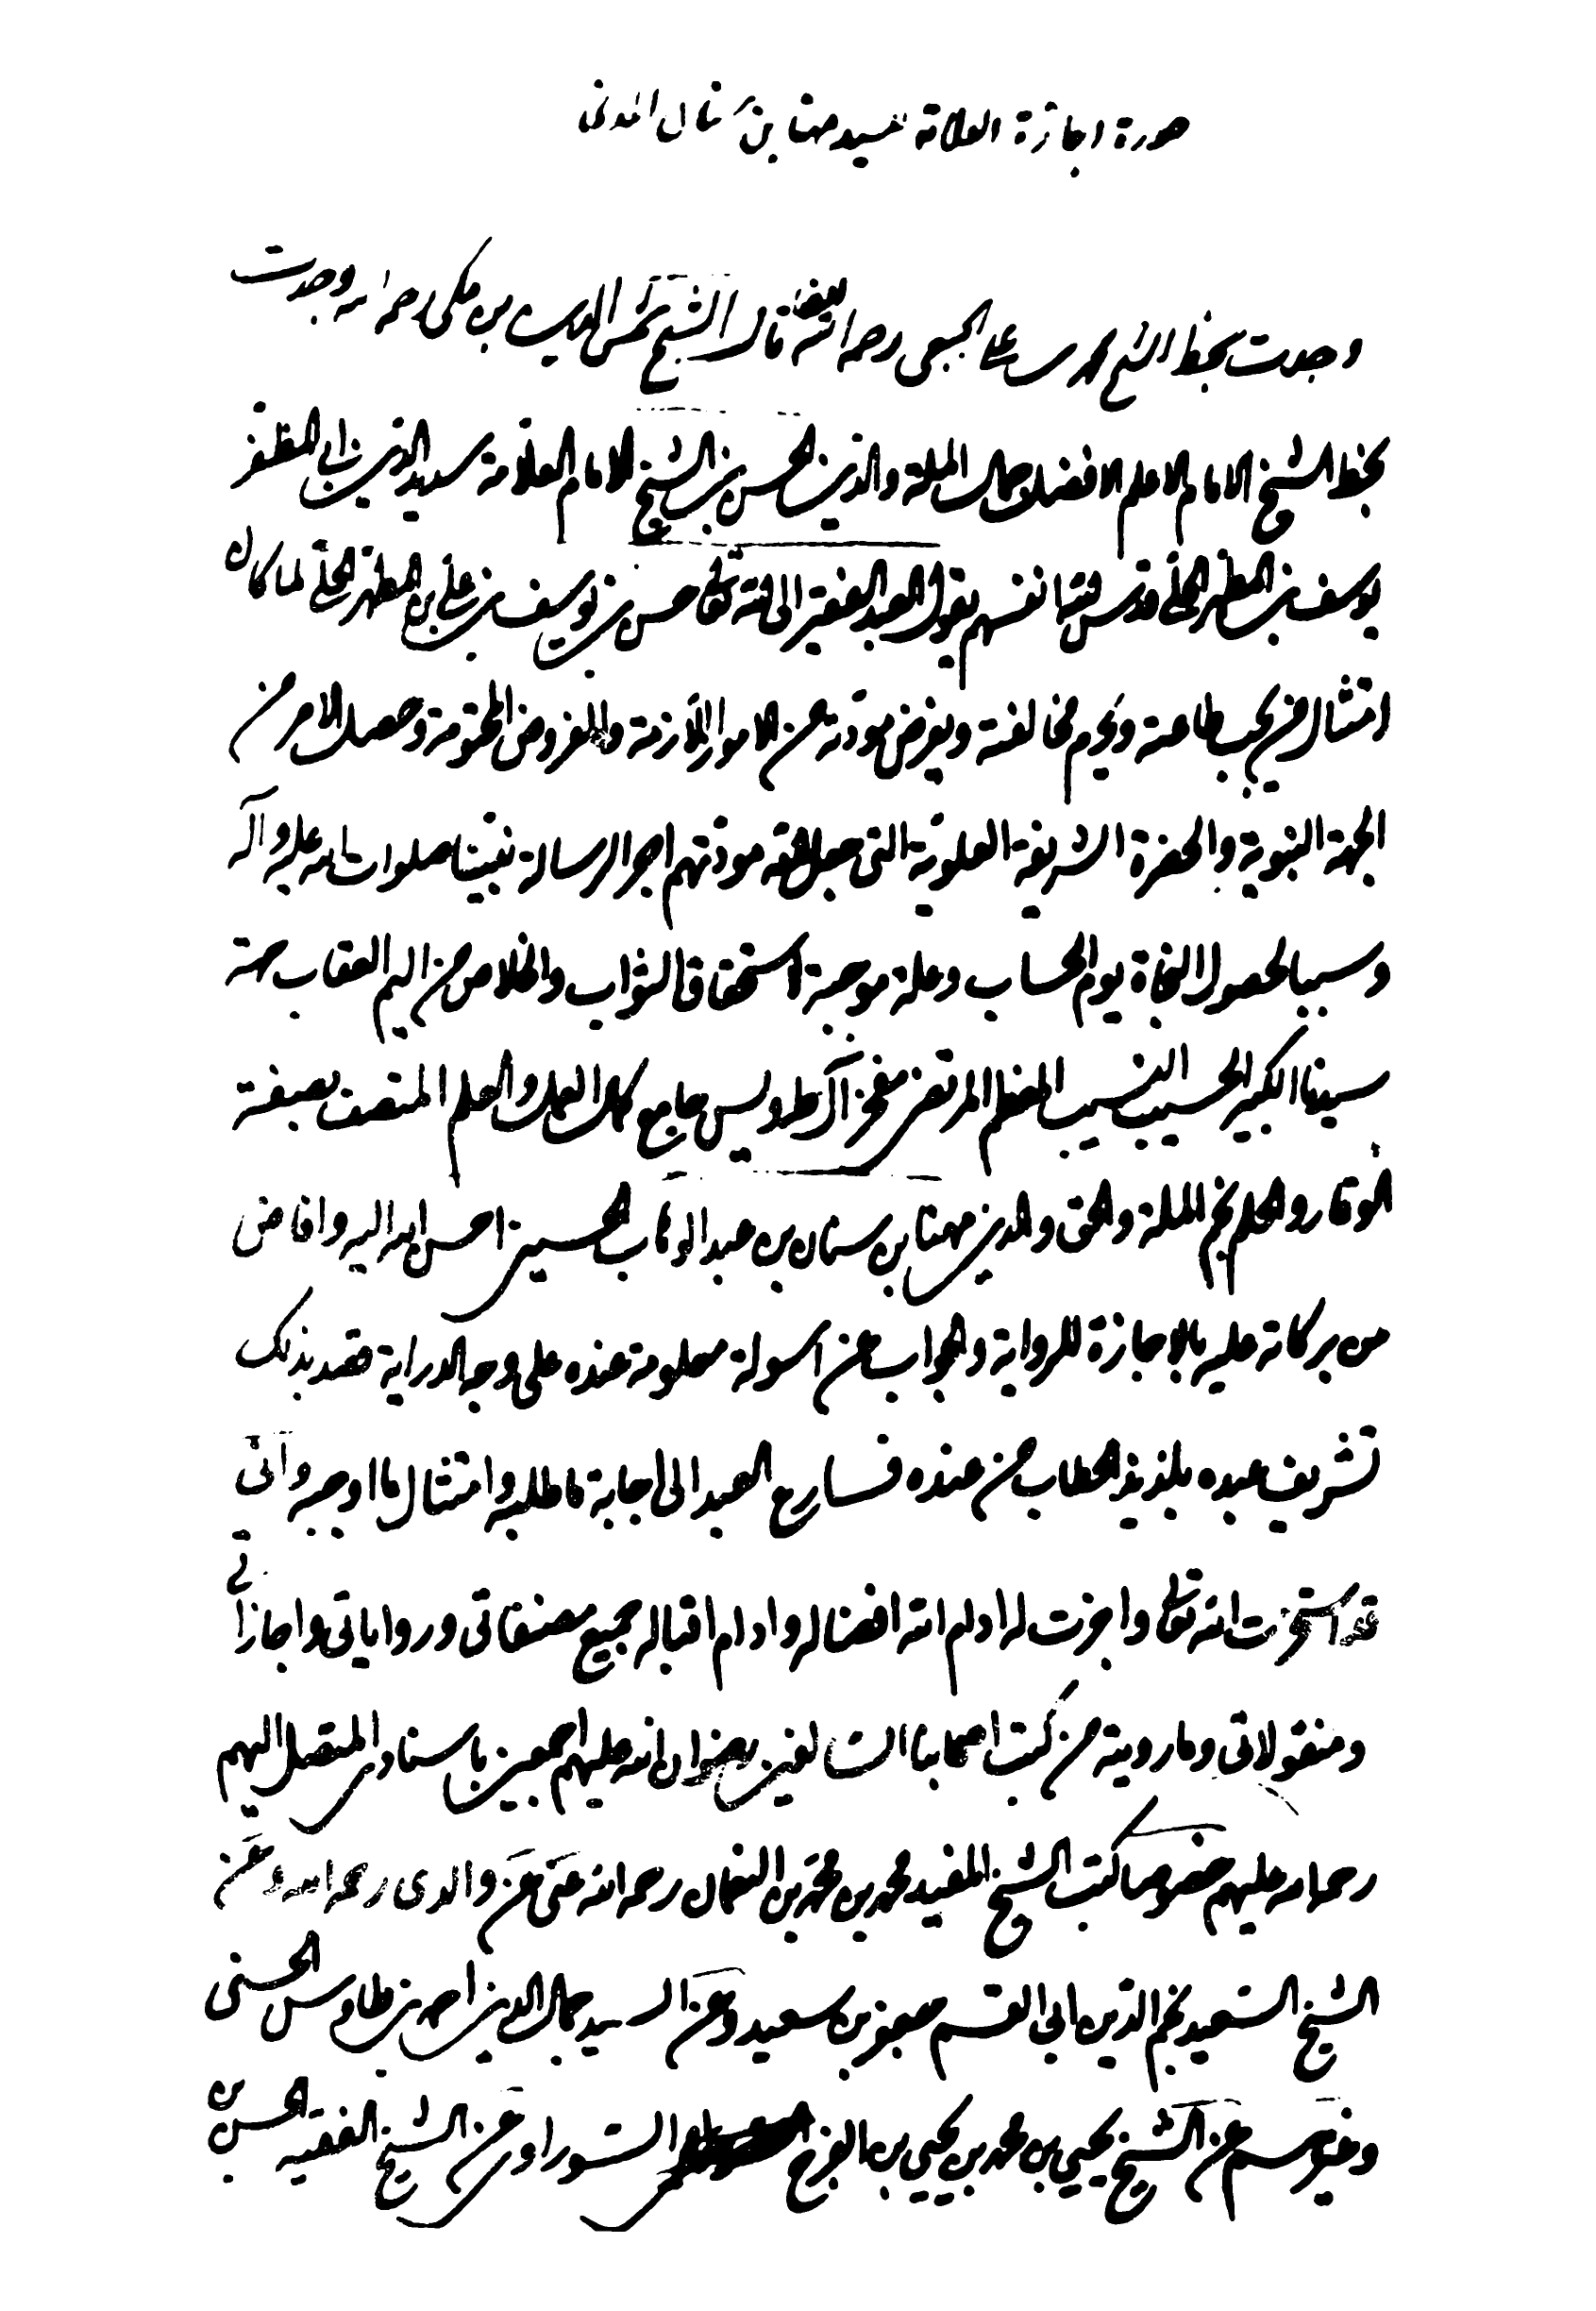 صورة اجازة العلامة للسيد مهنا بن سنان المدنى
وجدت بخط الشيخ محمد بن علي الجبعي رحمه الله قال الشيخ شمس الدين بن مكى رحمه الله وجدت
بخط الشيخ الامام الاعلم الافضل جمال الملة والدين الحسن بن الشيخ الامام العلامة سديد الدين ابى المظفر
يوسف بن المطهر الحلى قدس الله انفسهم يقول العبد الفقير الى الله تعالى حسن بن يوسف بن على بن المطهر الحلى لما كان
امتثال من يجب طاعته ويحرم مخالفته ويفرض مودته من الامور اللازمة والفروض المحتومة وحصل الامر من
الجهة النبوية والحضرة الشريفة العلوية التى جعل الله مودتهم اجر الرسالة نبينا صلوات الله عليه وآله
وسببا لحصول النجاة يوم الحساب وعلة موجبة استحقاق الثواب والخلاص من اليم العقاب جهة
سيدنا الكبير الحسيب النسيب المعظم المرتضى مفخر آل طه ويس جامع كمال العمل والعلم المتصف بصفة
الوقار والحلم نجم الملة والحق والدين مهنا بن سنان بن عبد الوهاب الحسينى احسن الله اليه وافاض
من بركاته عليه بالاجازة للرواية والجواب عن اسولة معلومة عنده على وجه الدراية قصد بذلك
تشريف عبده بلذيذ الخطاب من عنده فسارع العبد الى اجابة ما طلبه وامتثال ما اوجبه وانى
قد استخرت الله تعالى واجزت له ادام الله افضاله وادام اقباله جميع مصنفاتى ورواياتى واجازاتى
ومنقولاتى وما رويته من كتب اصحابنا السالفين رضوان الله عليهم اجمعين باسنادى المتصل اليهم
رحمة الله عليهم خصوصا كتب الشيخ المفيد محمد بن محمد بن النعمان رحمه الله عنى عن والدى رحمه الله وعن
الشيخ السعيد نجم الدين ابى القسم جعفر بن سعيد وعن السيد جمال الدين احمد بن طاوس الحسنى
وغيرهم عن الشيخ يحيى بن محمد بن يحيى بن الفرج السوراوى عن الشيخ الفقيه الحسن بن